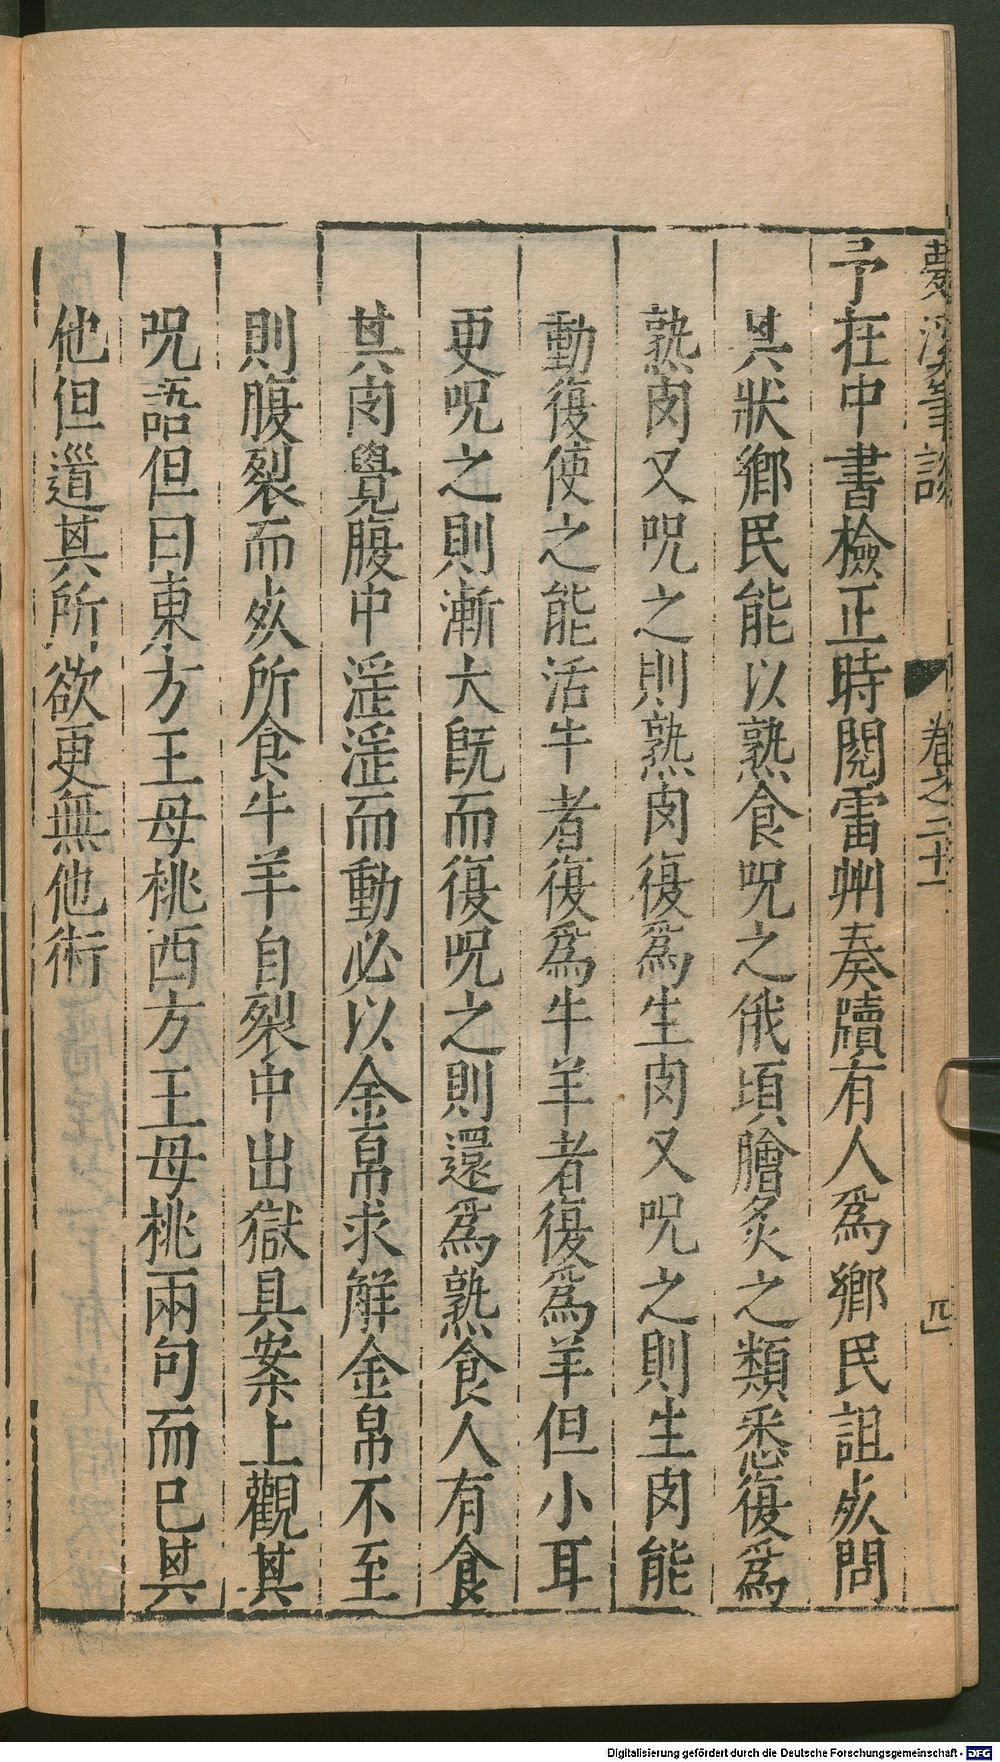 夢溪筆談
卷之二十一
四
予在中書檢正時閱雷州奏牘有人爲鄉民詛死問
其狀鄉民能以熟食呪之俄頃膾炙之類悉復爲
熟肉又呪之則熟肉復爲生肉又呪之則生肉能
動復使之能活牛者復爲牛羊者復爲羊但小耳
更呪之則漸大旣而復呪之則還爲熟食人有食
其肉覺腹中淫淫而動必以金帛求解金帛不至
則腹裂而死所食牛羊自裂中出獄具案上觀其
呪語但曰東方王母桃西方王母桃兩句而已其
他但道其所欲更無他術
Digitalisierung gefördert durch die Deutsche Forschungsgemeinschaft - DFG